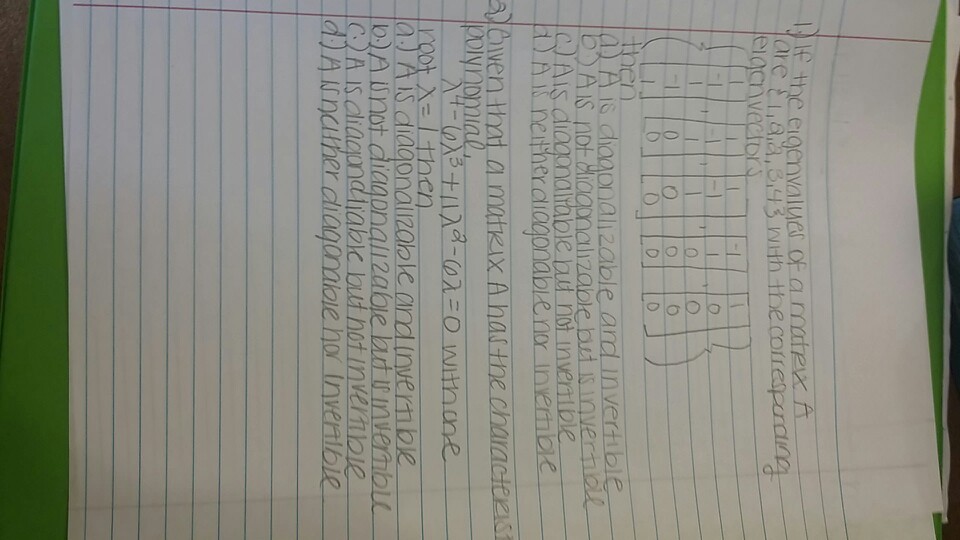 1) If the eigenvalues of a matrix A
are {1,2,3,3,4} with the corresponding
eigenvectors
{ [ 1 | 1 | 1 | -1 | 1 ] }
-1 , -1 , -1 , 1 , 0
1 , 1 , 1 , 0 0
-1 0 0 0 0
1 0 0 0 0
then
a) A is diagonalizable and invertible
b) A is not diagonalizable but is invertible
c) A is diagonaliable but not invertible
d) A is neither diagonable nor invertible
2) Given that a matrix A has the characterist
polynomial,
λ⁴-6λ³+11λ²-6λ=0 with one
root λ=1 then
a.) A is diagonalizable and invertible
b.) A is not diagonalizable but is invertible
c.) A is diagondiable but not invertible
d.) A is neither diagonable nor invertible